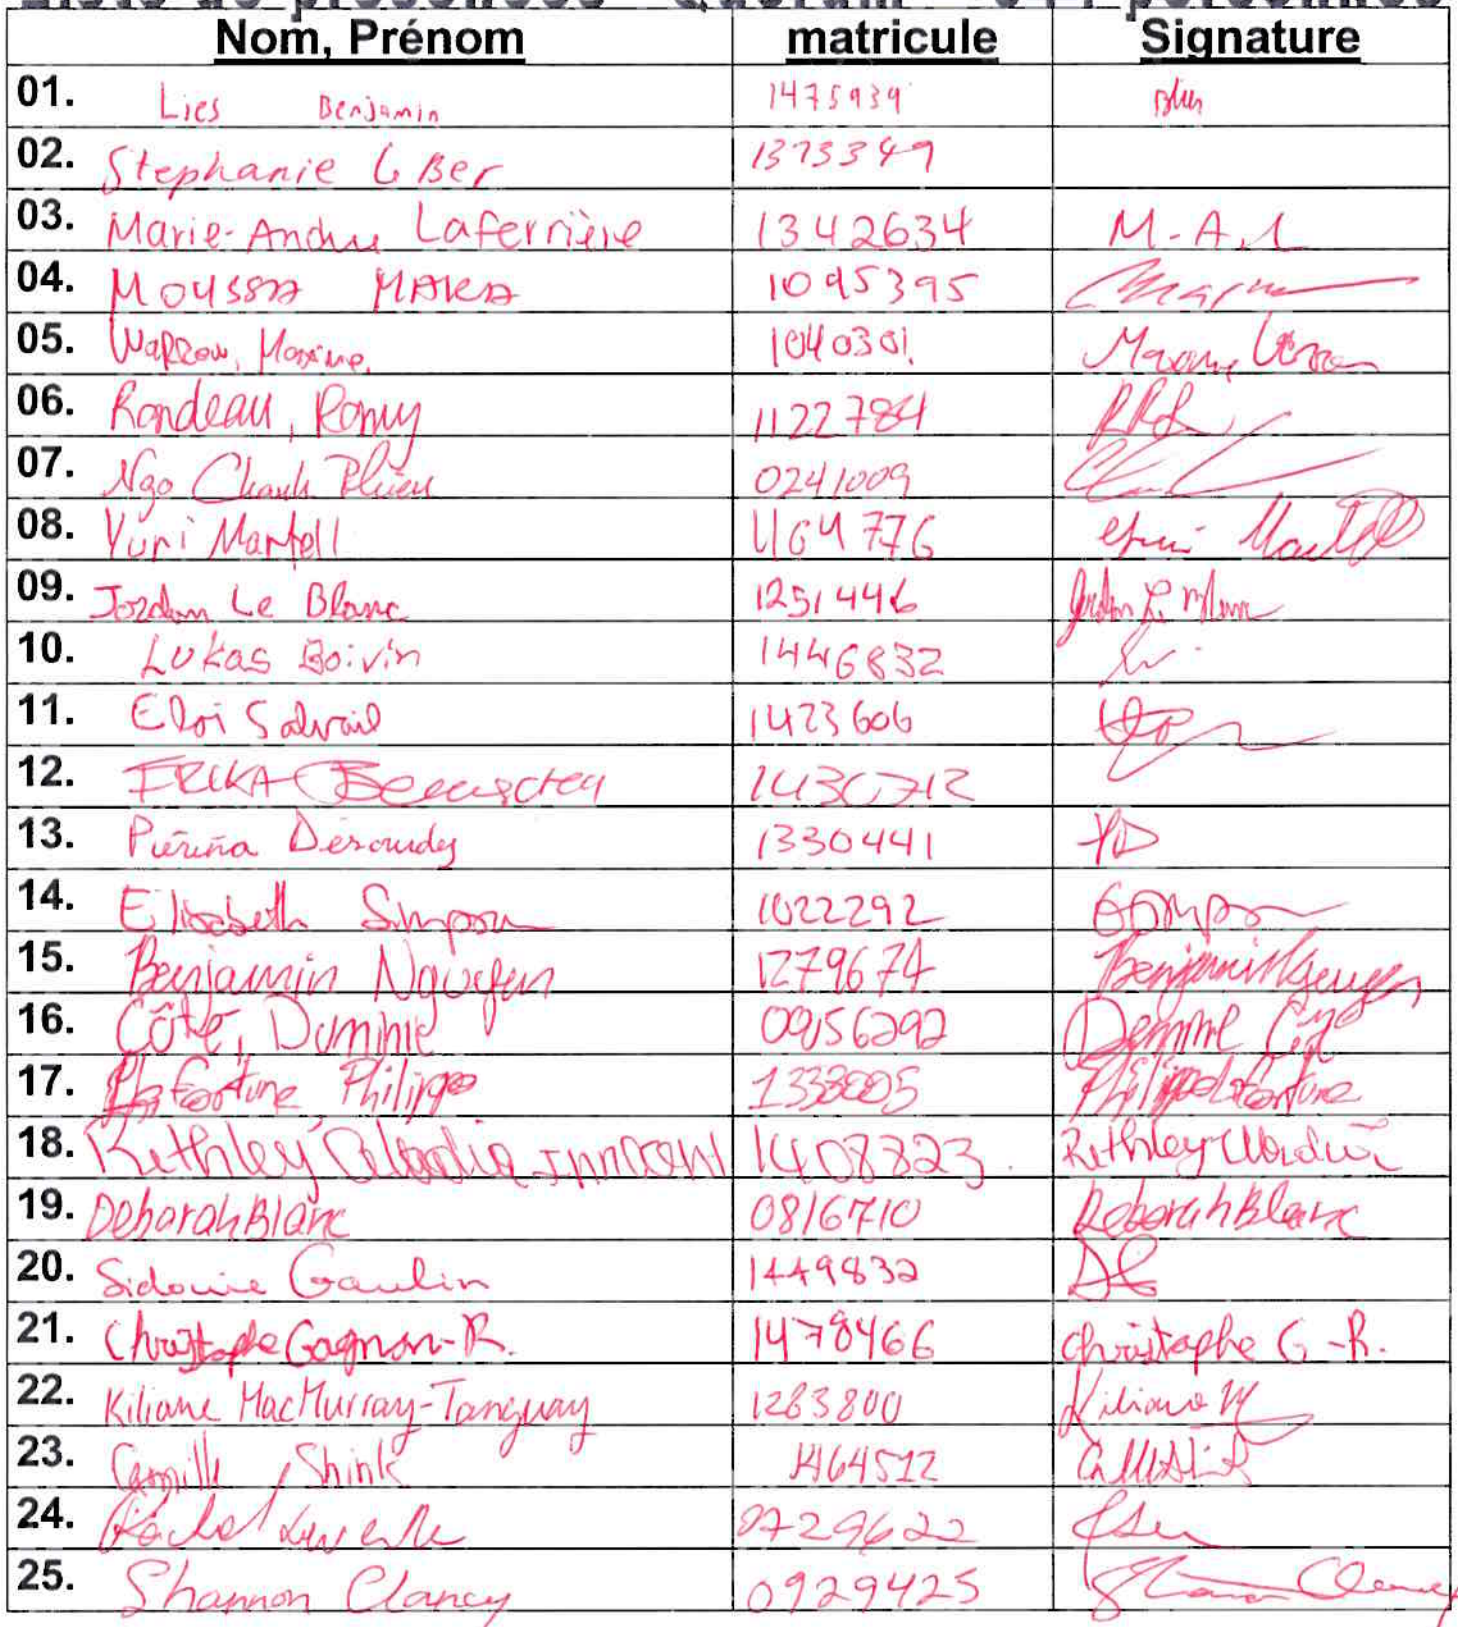 Liste de présences Quorum
Nom, Prénom matricule Signature
01. Lies Benjamin 1475939
02. Stephanie Le Ber 1373349
03. Marie-Andrée Laferrière 1342634 M-A.L
04. MOUSSA MAKA 1095395
05. Warren, Maxime, 1040301
06. Rondeau, Romy 1122784
07. Ngo Chanh 0241009
08. Yuri Martell 1164776 Yuri Martell
09. Jordan Le Blanc 1251446 Jordan Le Blanc
10. Lukas Boivin 1446832
11. Eloi Salvail 1423606
12. ERIKA 1430712
13. Désourdy 1330441 PD
14. Elisabeth Simpson 1022292
15. Benjamin Nguyen 1279674 Benjamin Nguyen
16. Côté, Dominic 0956292
17. Lafortune Philippe Philippe Lafortune
18. Rethley Clordia innocent 1408823. Rethley Clordia
19. Deborah Blanc 0816710 Deborah Blanc
20. Sidonie Gaulin 1449832
21. Christophe Gagnon-R. 1478466 Christophe G-R.
22. Kiliane MacMurray-Tanguay 1263800 Kiliane M
23. Camille Shink 1464512
24. Rachel 0729622
25. Shannon Clancy 0929425 Shannon Clancy